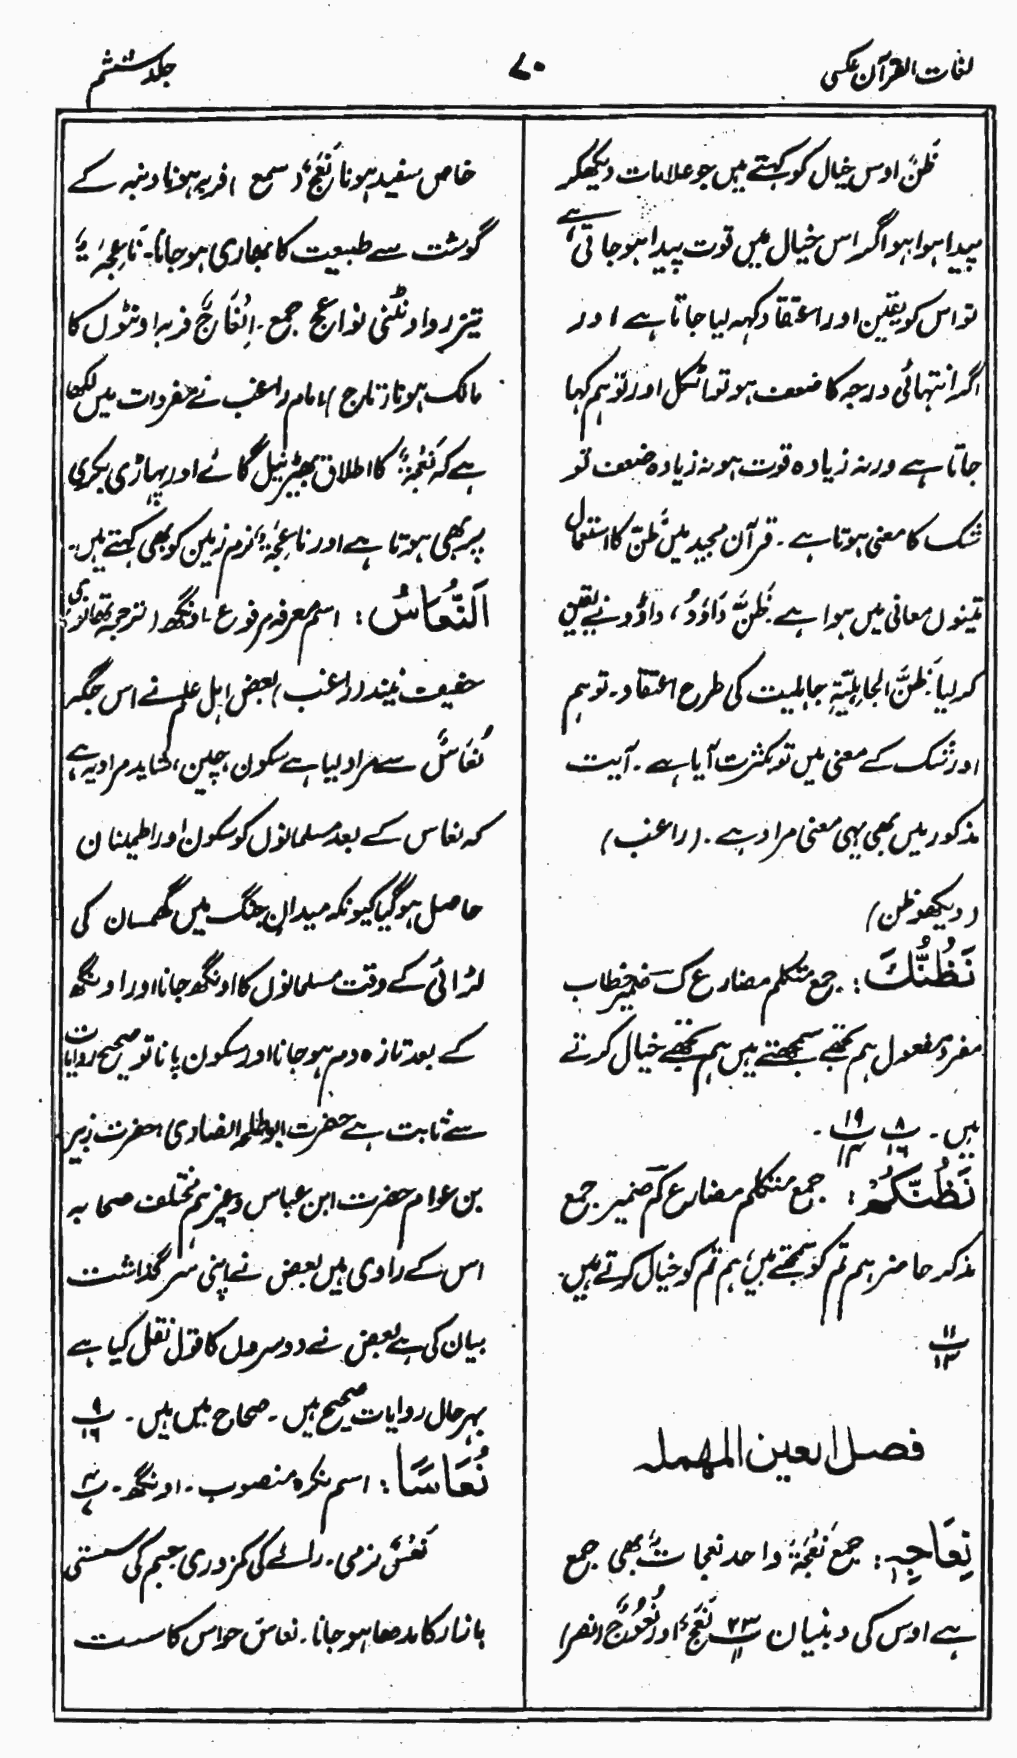 لغات القرآن عکسی
۷۰
جلد ششم
ظَنّ اوس خیال کو کہتے ہیں جو علامات دیکھکر
پیدا ہوا ہو اگر اس خیال میں قوت پیدا ہو جاتی ہے
تو اس کو یقین اور اعتقاد کہہ لیا جاتا ہے اور
اگر انتہائی درجہ کا ضعف ہو تو اٹکل اور توہم کہا
جاتا ہے ورنہ زیادہ قوت ہو نہ زیادہ ضعف تو
شک کا معنی ہوتا ہے۔ قرآن مجید میں ظنّ کا استعمال
تینوں معانی میں ہوا ہے ظَنَّ دَاوٗدُ، داؤد نے یقین
کر لیا ظَنَّ الجاہِلِیّۃِ جاہلیت کی طرح اعتقاد۔ توہم
اور شک کے معنی میں تو بکثرت آیا ہے۔ آیت
مذکور میں بھی یہی معنی مراد ہے۔ (راغب)
(دیکھو ظن)
نَظُنُّكَ: جمع متکلم مضارع کَ ضمیر خطاب
مفرد مفعول ہم تجھے سمجھتے ہیں ہم تجھے خیال کرتے
ہیں۔ پ ۸/۱۶ پ ۱۹/۱۴۔
نَظُنُّكُمْ: جمع متکلم مضارع کُم ضمیر جمع
مذکر حاضر ہم تم کو سمجھتے ہیں، ہم تم کو خیال کرتے ہیں۔
پ ۱۱/۱۳
فصل العین المهملہ
نِعَاجِہٖ: جمع نَعْجَۃٌ واحد نعجات بھی جمع
ہے اوس کی دنبیاں پ ۲۳/۱۱ نَعْجٌ اور نُعُوْجٌ (نصر)
خاص سفید ہونا نَعَجٌ (سمع) فربہ ہونا دنبہ کے
گوشت سے طبیعت کا بھاری ہو جانا۔ نَاعِجَۃٌ
تیز رو اونٹنی نواعج جمع۔ اِنْعَاجٌ فربہ اونٹوں کا
مالک ہونا (تاج) امام راغب نے مفردات میں لکھا
ہے کہ نَعْجَۃٌ کا اطلاق بھیڑ نیل گائے اور پہاڑی بکری
پر بھی ہوتا ہے اور ناعِجَۃٌ نرم زمین کو بھی کہتے ہیں۔
اَلنُّعَاسُ: اسم معرفہ مرفوع۔ اونگھ (ترجمہ تھانوی)
خفیف نیند (راغب) بعض اہل علم نے اس جگہ
نُعَاسٌ سے مراد لیا ہے سکون، چین، شاید مراد یہ ہے
کہ نعاس کے بعد مسلمانوں کو سکون اور اطمینان
حاصل ہو گیا کیونکہ میدان جنگ میں گھمسان کی
لڑائی کے وقت مسلمانوں کا اونگھ جانا اور اونگھ
کے بعد تازہ دم ہو جانا اور سکون پانا تو صحیح روایات
سے ثابت ہے حضرت ابو طلحہ انصاری، حضرت زبیر
بن عوام حضرت ابن عباس وغیرہم مختلف صحابہ
اس کے راوی ہیں بعض نے اپنی سرگذاشت
بیان کی ہے بعض نے دوسروں کا قول نقل کیا ہے
بہر حال روایات صحیح ہیں۔ صحاح میں ہیں۔ پ ۹/۱۶
نُعَاسًا: اسم نکرہ منصوب۔ اونگھ۔ پ ۴/۷
نَعْسٌ نرمی۔ رائے کی کمزوری جسم کی سستی
بازار کا مدھا ہو جانا۔ نعاس حواس کا سست